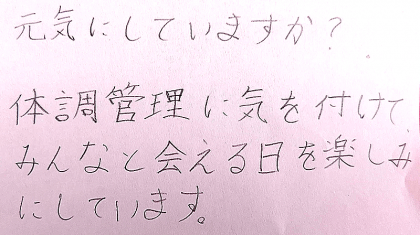 元気にしていますか?
体調管理に気を付けて、
みんなと会える日を楽しみ
にしています。